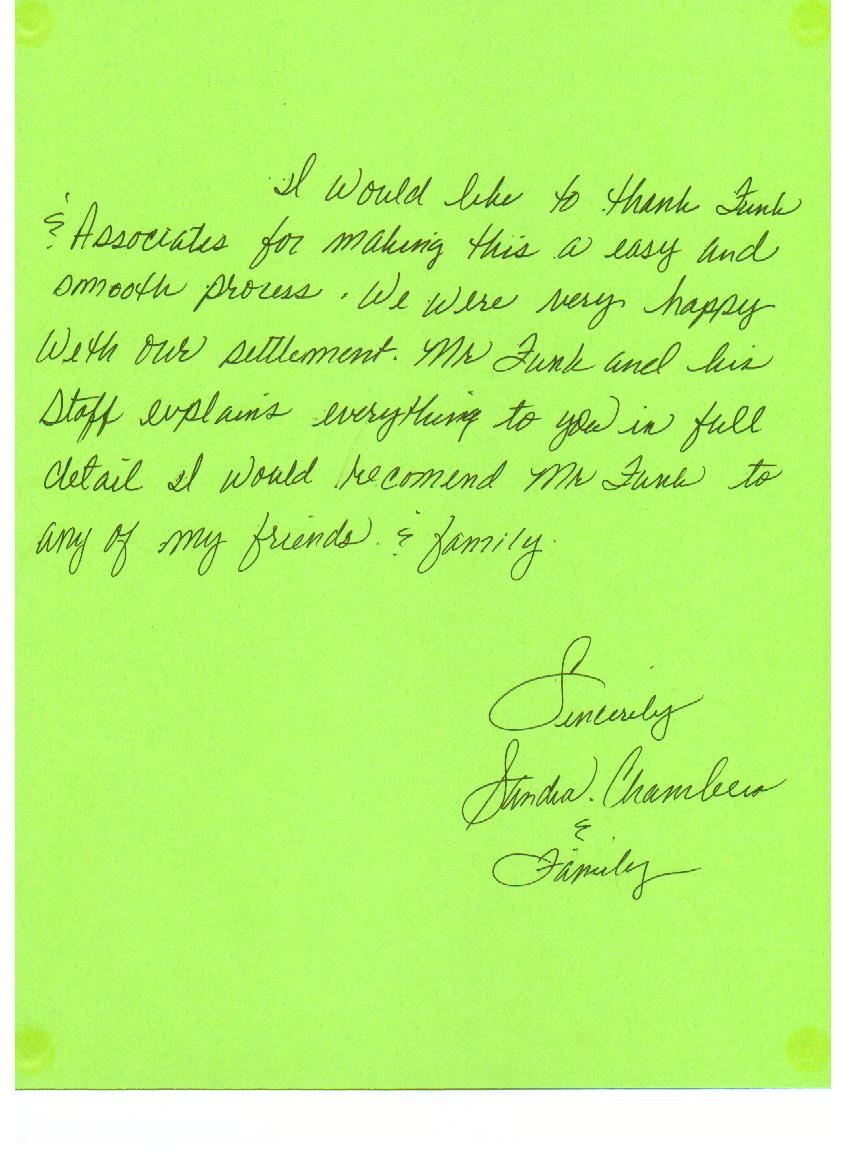 I would like to thank Funk
& Associates for making this a easy and
smooth process. We were very happy
with our settlement. Mr Funk and his
Staff explains everything to you in full
detail I would recomend Mr Funk to
any of my friends & family.
Sincerily
Sandra. Chambers
&
Family